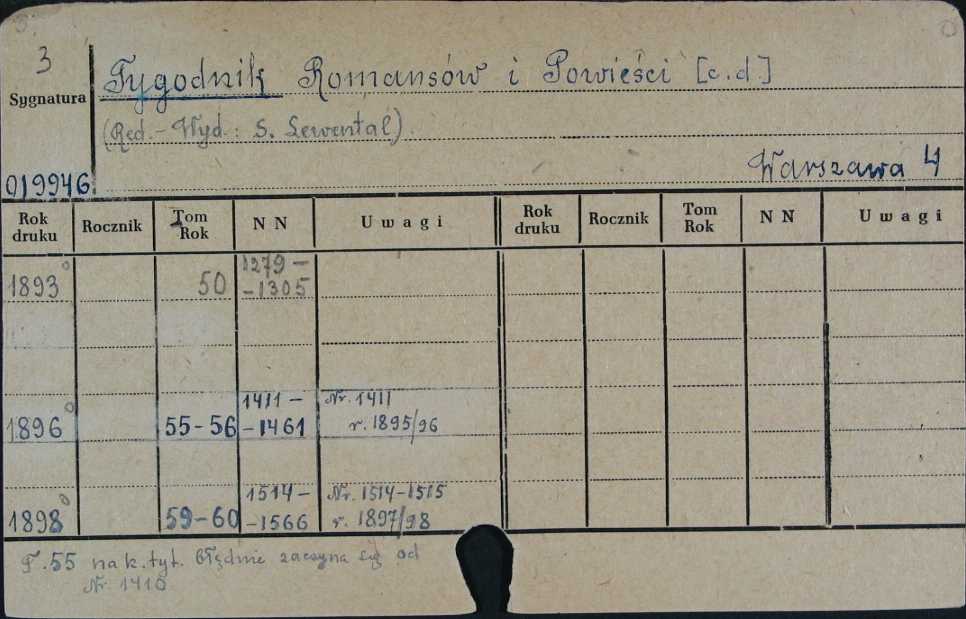 3
Tygodnik Romansów i Powieści [c.d]
Sygnatura
(Red.-Wyd.: S. Lewental)
Warszawa 4
019946
Rok druku Rocznik Tom Rok N N Uwagi Rok druku Rocznik Tom Rok N N Uwagi
1893° 50 1279 –
–1305
1411 – Nr. 1411
1896° 55-56 –1461 r. 1895/96
1514 – Nr. 1514-1515
1898° 59-60 –1566 r. 1897/98
T.55 na k.tyt. błędnie zaczyna się od
Nr 1410